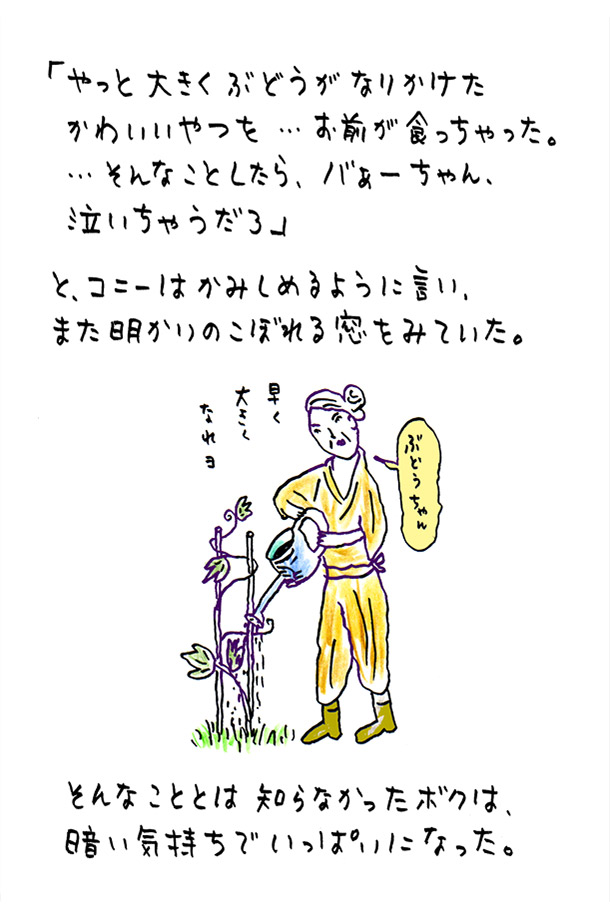 「やっと大きくぶどうがなりかけた
かわいいやつを…お前が食っちゃった。
…そんなことしたら、バぁーちゃん、
泣いちゃうだろ」
と、コニーはかみしめるように言い、
また明かりのこぼれる窓をみていた。
早く
大きく
なれヨ
ぶどうちゃん
そんなこととは知らなかったボクは、
暗い気持ちでいっぱいになった。